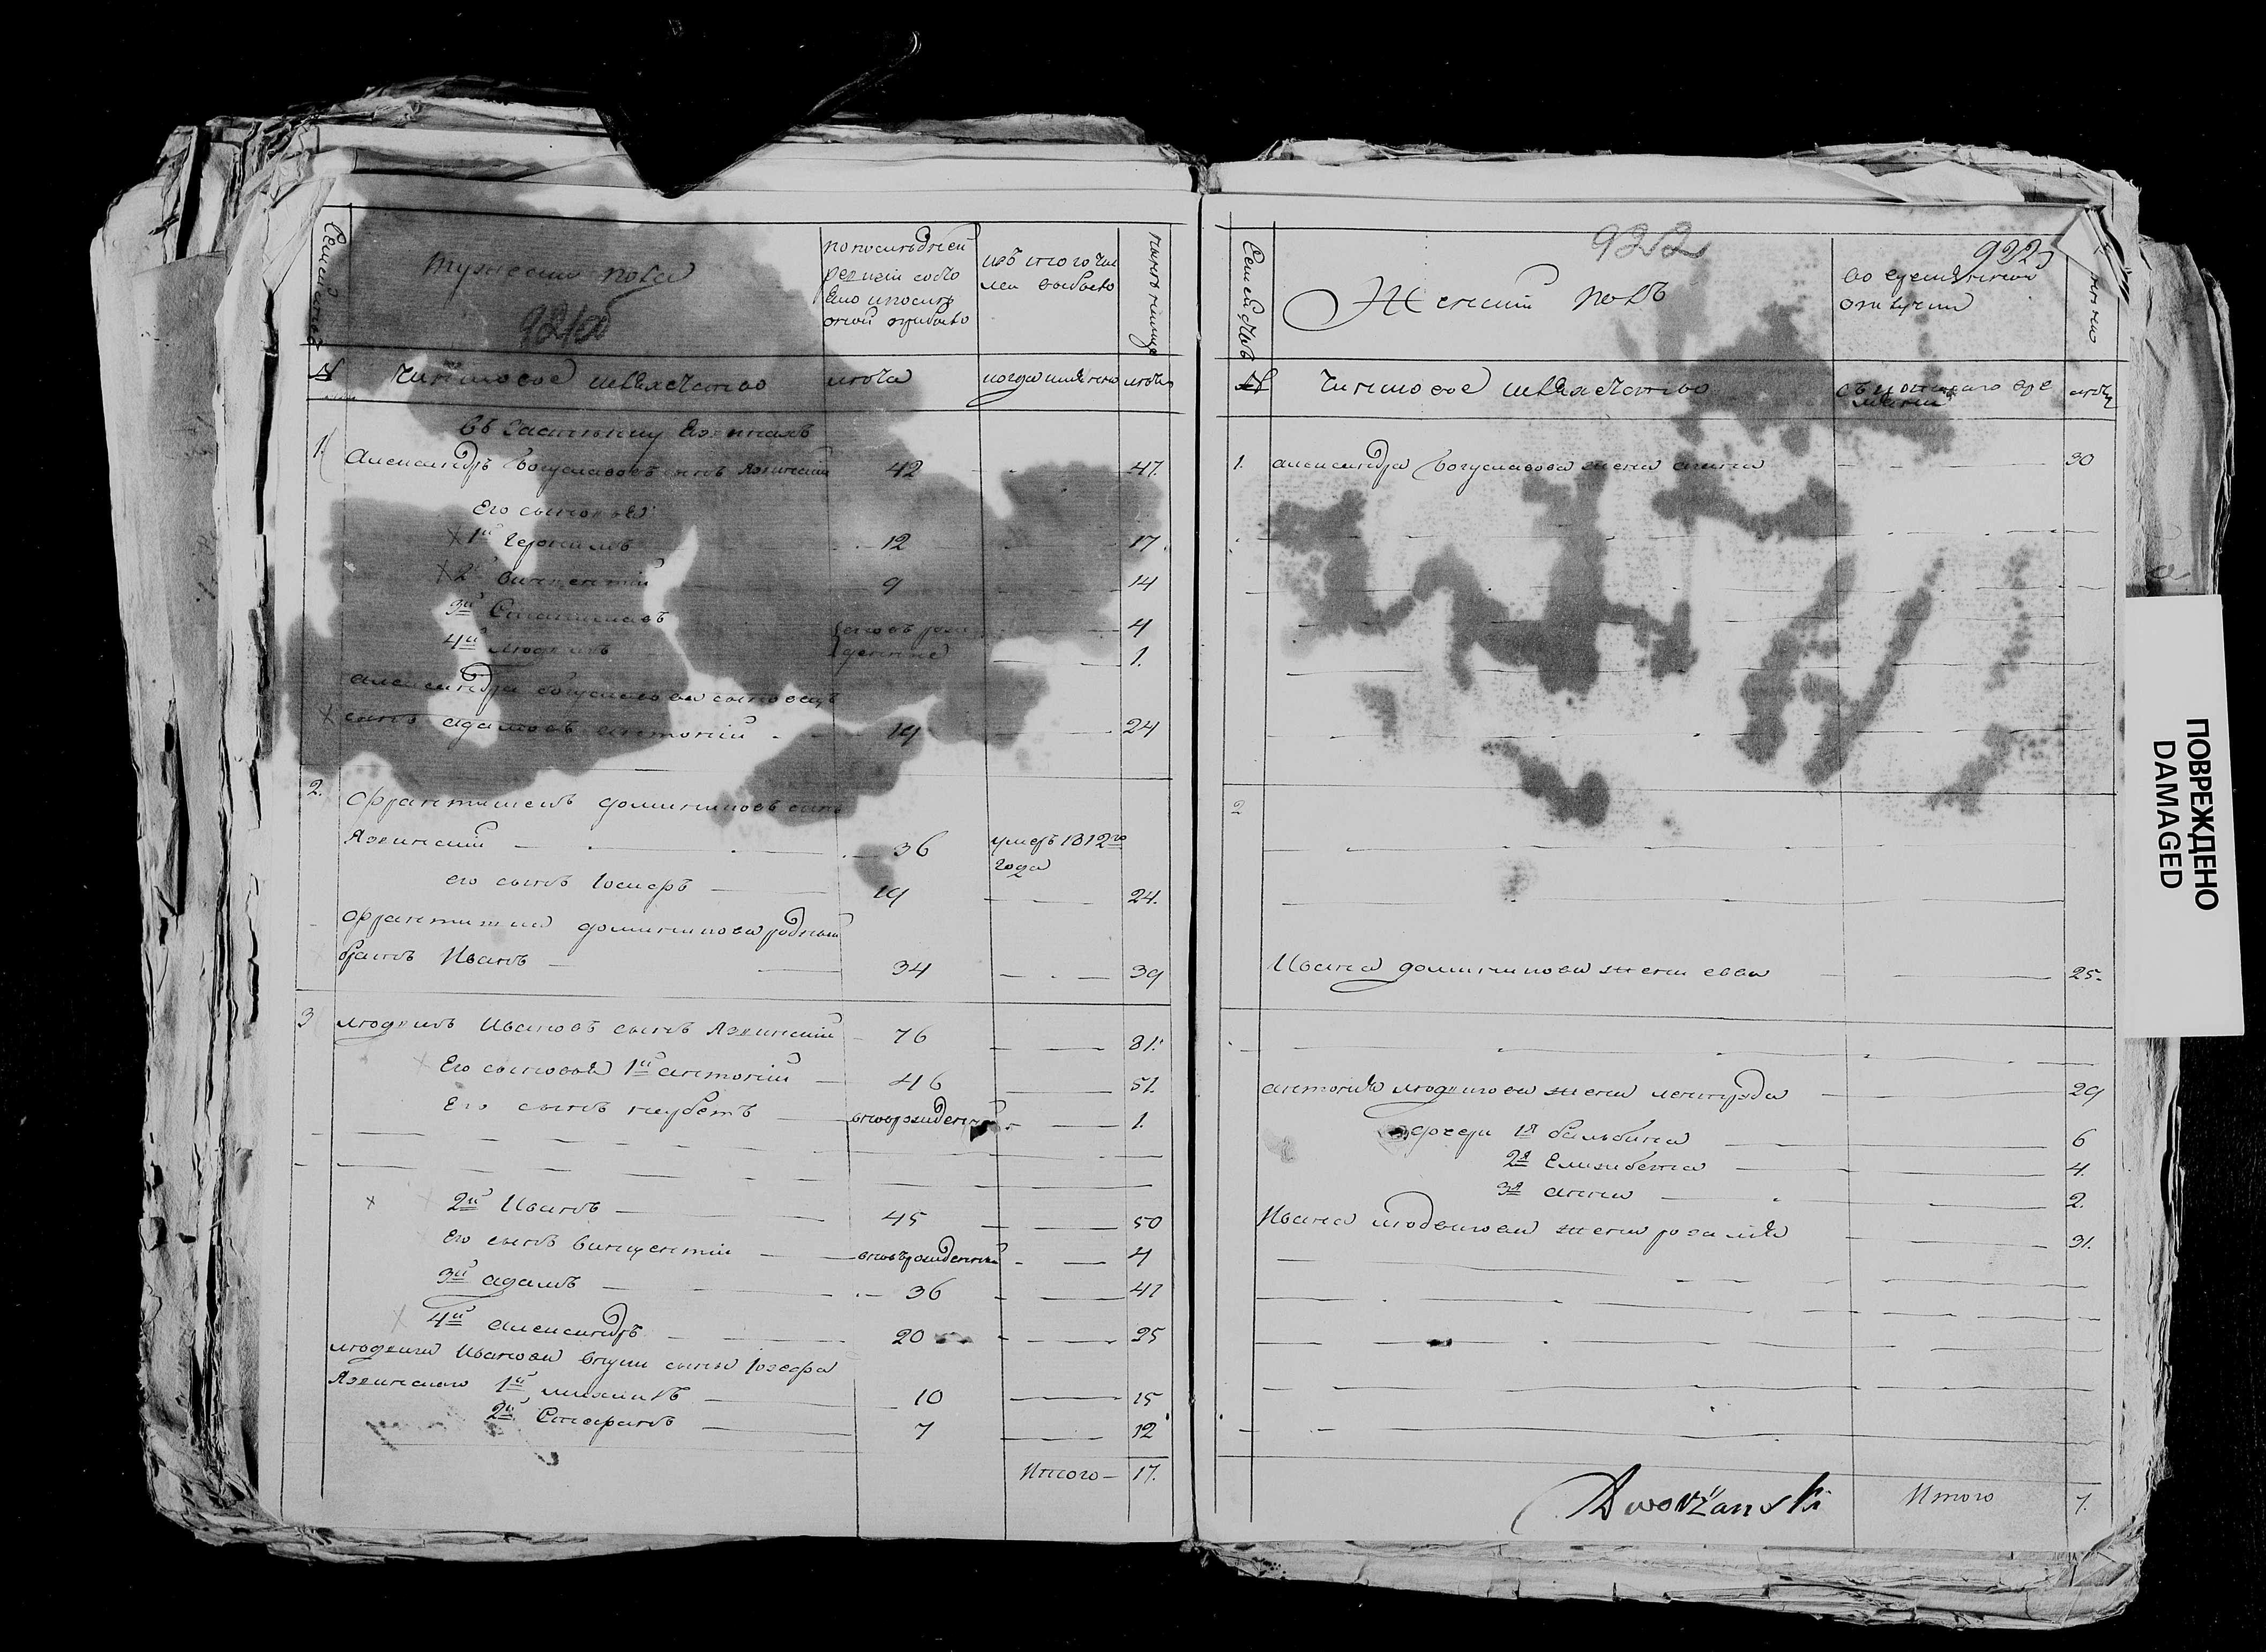 Семействъ
Мужескъ полъ
921об
по последней
ревизіи состо
яло и после
оной прибыло
изъ того чис
ла выбыло
ныне на лицо
№
Чиншовое шляхетство
лета
когда именно
лета
Въ застенку Язвинахъ
1. Александръ Богуславовъ сынъ Язвинскій 42 47.
Его сыновья
1й 12 17.
2й Винцентій 9 14
3й Станиславъ 4
4й Людвикъ 1.
вновь рож
денные
Александра Богуславова
сынъ Адамовъ Антоній 19 24
2. Франтишекъ Доминиковъ сынъ
Язвинскій 36 умеръ 1812го
года
его сынъ Іосифъ 19 24.
Франтишка Доминикова родный
братъ Иванъ 34 39
3 Людвикъ Ивановъ сынъ Язвинскій 76 81.
Его сыновья 1й Антоній 46 51.
Его сынъ вноворожденный 1.
2й Иванъ 45 50
Его сынъ Винцентій вноворожденный 4
3й Адамъ 36 41
4й Александръ 20 25
Людвига Иванова внуки сыны Іозефа
Язвинского 1й Михаилъ 10 15
2й Стефанъ 7 12
Итого 17.
Семействъ
922
Женскій полъ
922
во временной
отлучки
№
Чиншовое шляхетство
съ которого вре
мени
лета
1. Александра Богуславова жена Анна 30
2
Ивана Доминикова жена Ева 25.
Антонія Людвигова жена 29
дочери 1я Бальбина 6
2я Елизабета 4.
3я Анна 2.
Ивана Людвигова жена Розалія 31.
Dworżanski
Итого 7.
ПОВРЕЖДЕНО
DAMAGED